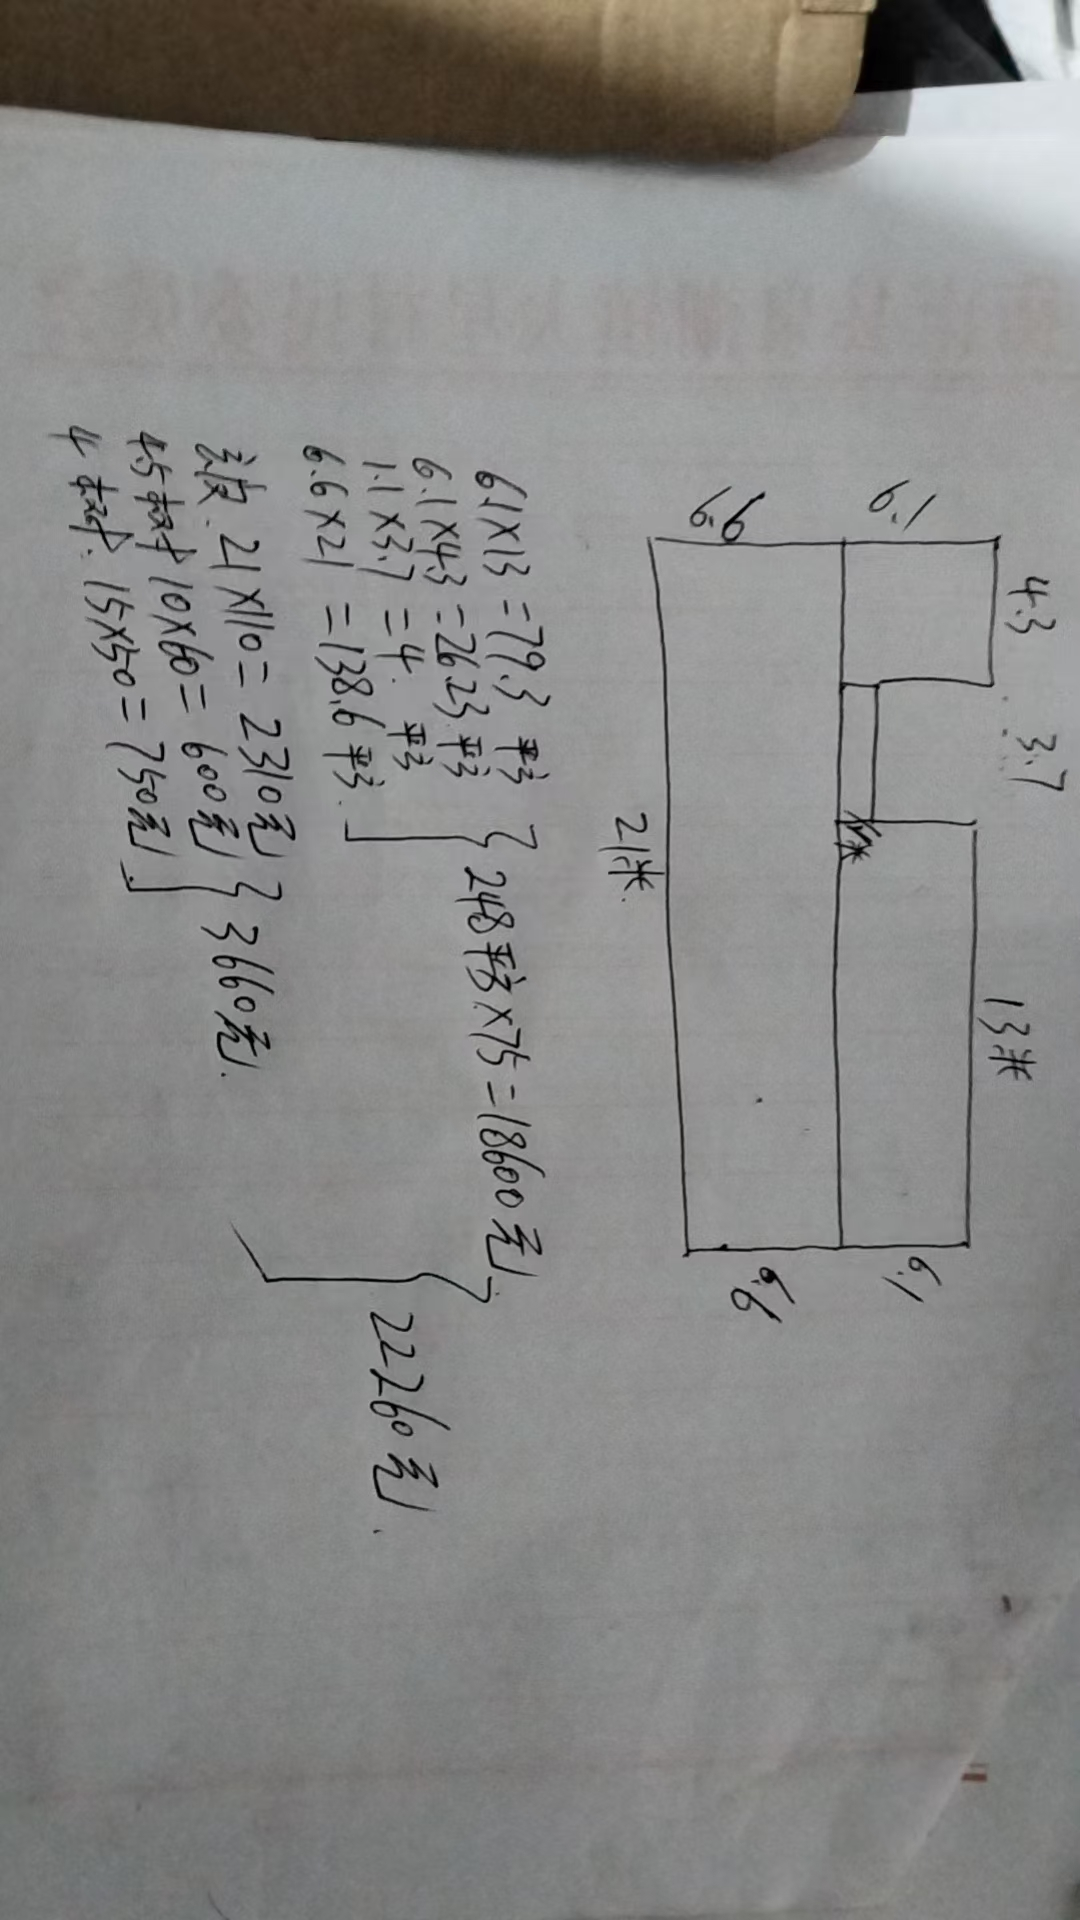 4.3
3.7
13米
6.1
6.1
6.6
6.6
21米.
6.1×13=79.3 平方
6.1×4.3=26.23.平方
1.1×3.7=4. 平方
6.6×21=138.6平方.
248平方×75=18600元
21×110=2310元
4.5 10×60=600元
4 15×50=750元
3660元.
22260元.